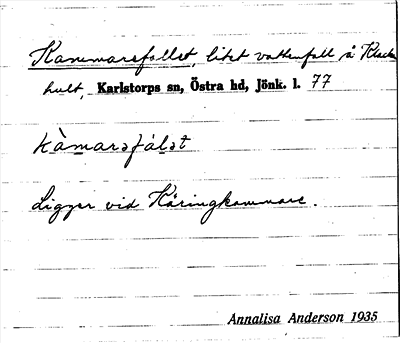 Kammarefallet, litet vattenfall å Klacka
hult, Karlstorps sn, Östra hd, Jönk. l. 77
kàmarəfálət
Ligger vid Käringkammare.
Annalisa Anderson 1935